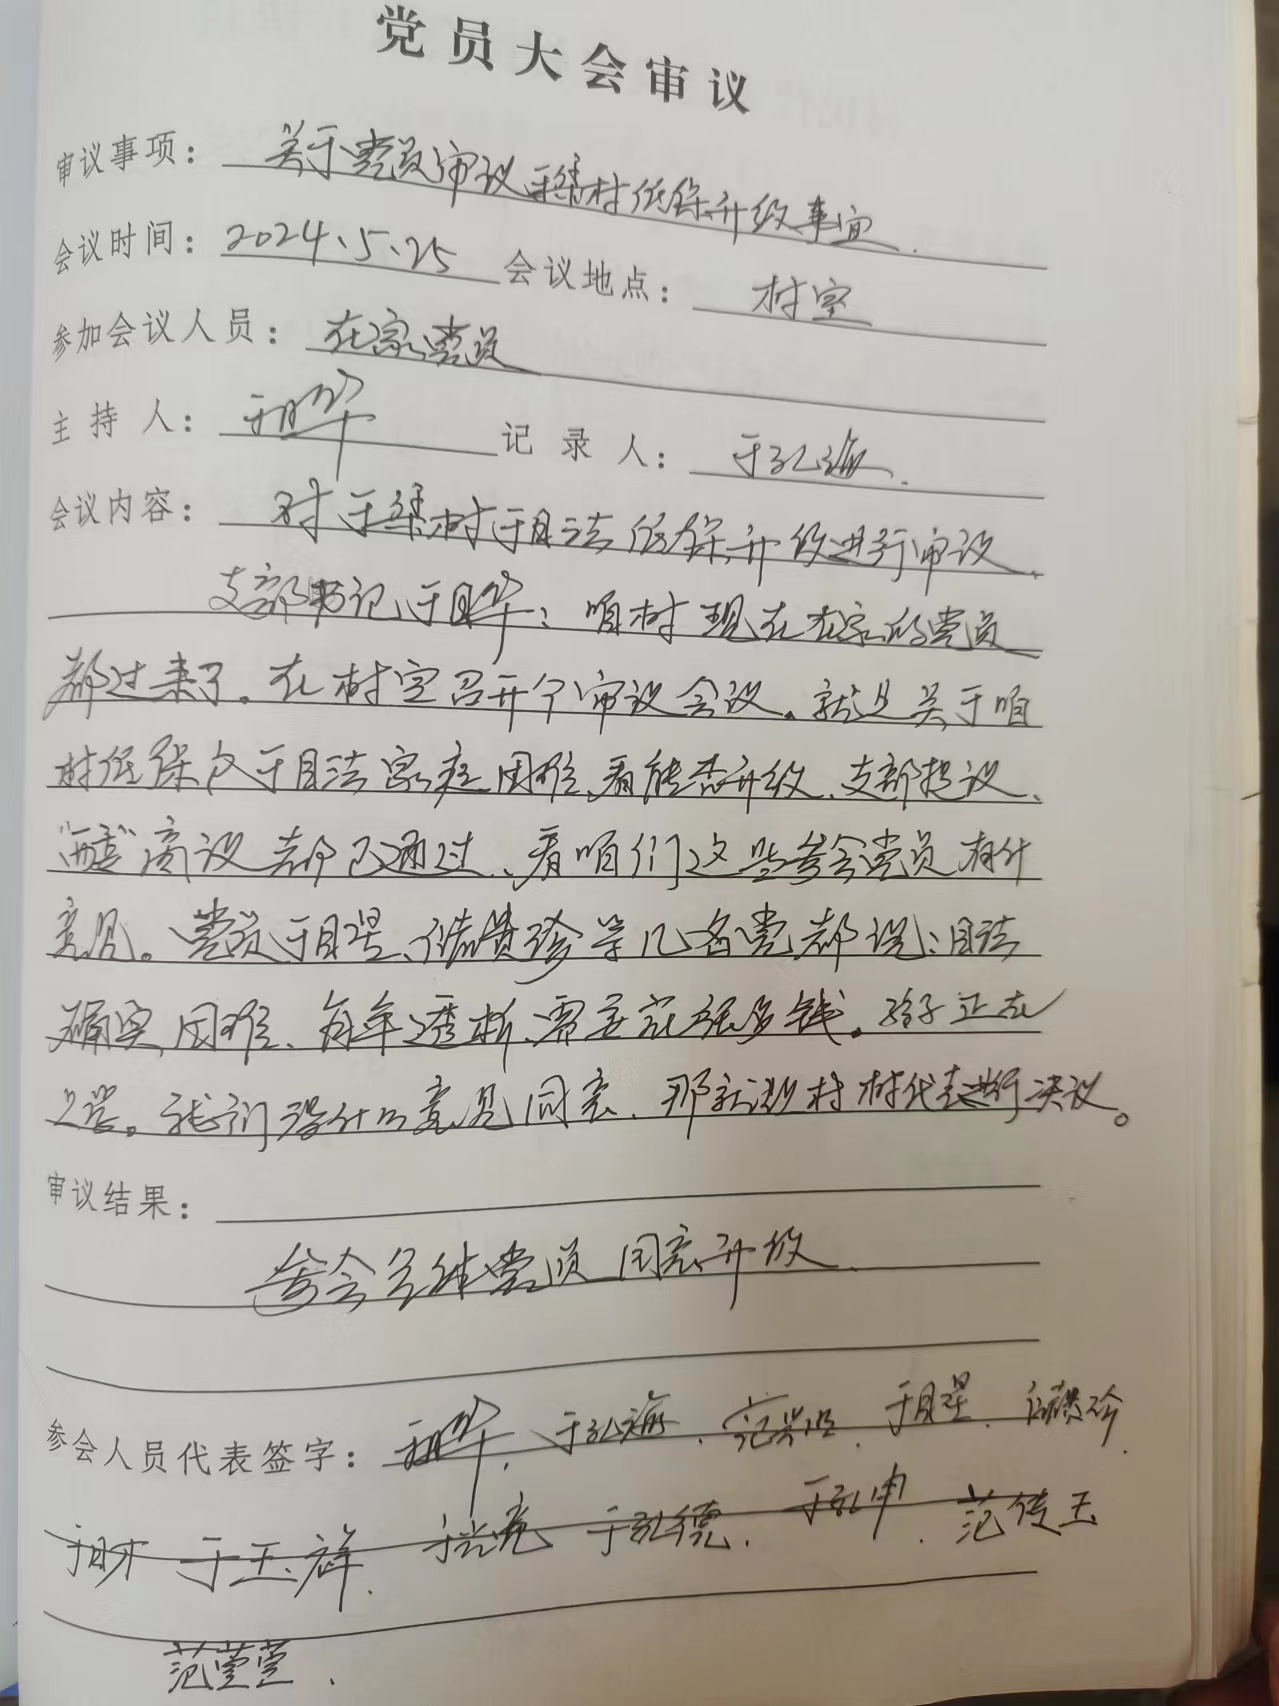 党员大会审议
审议事项：关于党员审议于集村低保升级事宜.
会议时间：2024、5、25 会议地点：村室
参加会议人员：在家党员
主持人：于自华 记录人：于孔海.
会议内容：对于集村于自法低保升级进行审议.
支部书记于自华：咱村现在在家的党员
都过来了。在村室召开个审议会议。就是关于咱
村低保户于自法家庭困难、看能否升级、支部提议、
“两委”商议都已通过、看咱们这些参会党员有什
意见。党员于自星、褚贵珍等几名党都说：自法
确实困难、每年透析、需要花很多钱。孩子正在
上学。我们没什么意见同意.那就村村代表进行决议。
审议结果：
参会全体党员同意升级.
参会人员代表签字：于自华、于孔海、范兴 、于自星、褚贵珍.
于自才 于玉祥. 于光亮 于孔德. 于孔申. 范传玉
范萱萱.